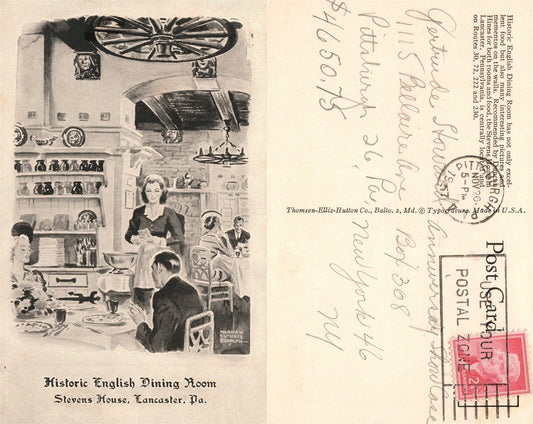 HERMAN
GUTHRIE
Historic English Dining Room
Stevens House, Lancaster, Pa.
Historic English Dining Room has not only excel-
lent food but also many interesting pictures and
mementos on the walls. Recommended by Duncan
Hines for both rooms and food, the Stevens House,
Lancaster, Pennsylvania, is centrally located
on Routes 30, 72, 222 and 230.
Thomsen-Ellis-Hutton Co., Balto. 2, Md. © Typogravure. Made in U.S.A.
Post Card
PITTSBURGH
NOV 26
5-PM
USE
YOUR
POSTAL ZONE
2¢
Gertrude
1111 S Bellaire Ave
Pittsburgh 26, Pa.
$4650.75
Anniversary Showcase
Box 308
New York 46
NY